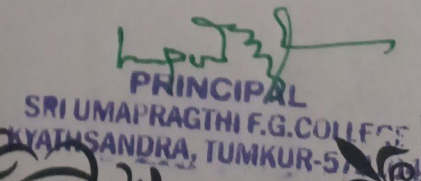 PRINCIPAL
SRI UMAPRAGTHI F.G.COLLEGE
KYATHSANDRA, TUMKUR-57